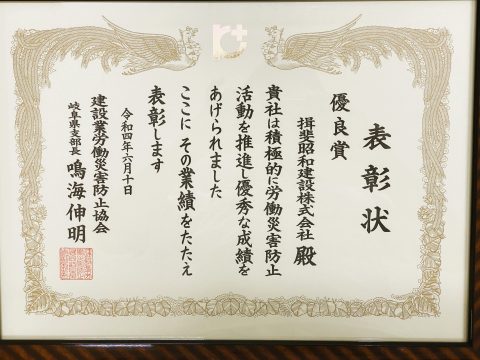 表彰状
優良賞
揖斐昭和建設株式会社 殿
貴社は積極的に労働災害防止
活動を推進し優秀な成績を
あげられました
ここに その業績をたたえ
表彰します
令和四年六月十日
建設業労働災害防止協会
岐阜県支部長 鳴海伸明